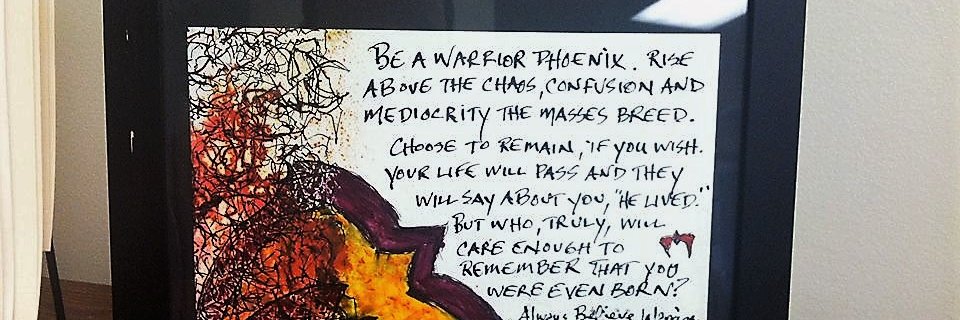 BE A WARRIOR PHOENIX. RISE
ABOVE THE CHAOS, CONFUSION AND
MEDIOCRITY THE MASSES BREED.
CHOOSE TO REMAIN, IF YOU WISH.
YOUR LIFE WILL PASS AND THEY
WILL SAY ABOUT YOU, "HE LIVED."
BUT WHO, TRULY, WILL
CARE ENOUGH TO
REMEMBER THAT YOU
WERE EVEN BORN?
Always Believe